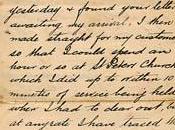 yesterday & found your letter
awaiting my arrival. I then
made straight for my customer
so that I could spend an
hour or so at St Peters Church
which I did up to within 10
minutes of service being held
when I had to clear out, but
at anyrate I have traced